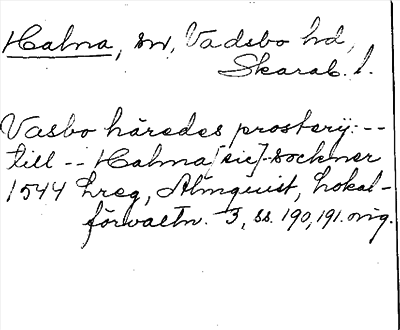 Halna, sn, Vadsbo hd,
Skarab. l.
Vasbo häredes prosterij: --
till -- Halma [sic]-sockner
1544 Lreg, Almquist, Lokal-
förvaltn. 3, ss. 190, 191. orig.